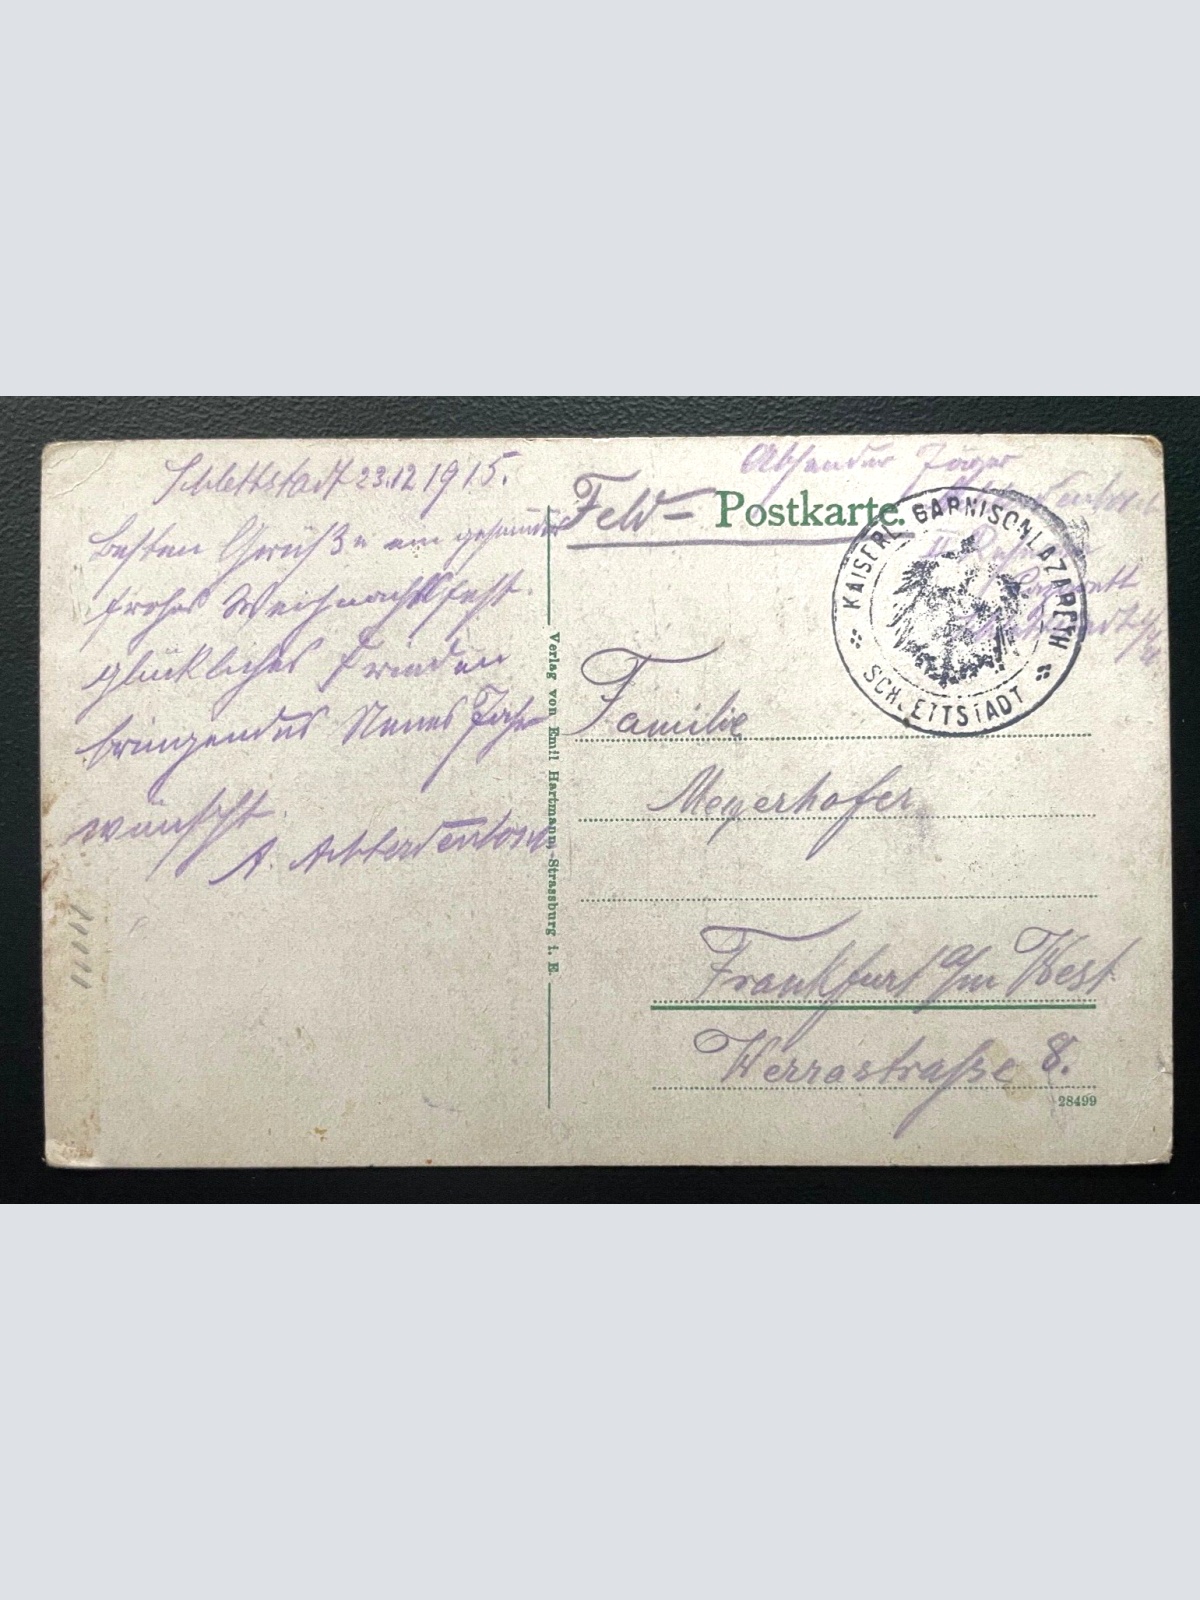 Schlettstadt 23.12.1915.
Besten Grüße ein gesundes
frohes Weihnachtsfest.
glückliches Frieden
bringendes Neues Jahr
wünscht
A.
Feld- Postkarte.
Absender Jäger
Lazarett
KAISERL. GARNISONLAZARETH
SCHLETTSTADT
Familie
Meyerhofer
Frankfurt a/m West
Werrastraße 8.
28499
Verlag von Emil Hartmann, Strassburg i. E.